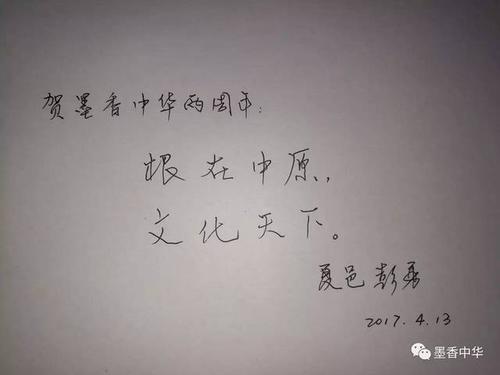 贺墨香中华两周年：
根在中原，
文化天下。
夏邑彭
2017.4.13
墨香中华